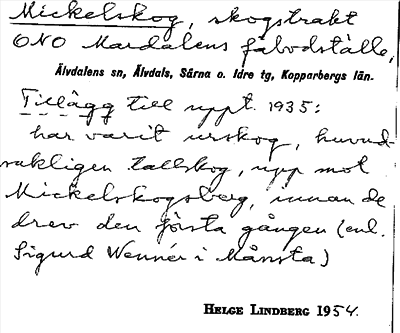 Mickelskog, skogstrakt
ONO Mardalens fäbodställe,
Älvdalens sn, Älvdals, Särna o. Idre tg, Kopparbergs län.
Tillägg till uppt. 1935:
har varit urskog, huvud-
sakligen tallskog, upp mot
Mickelskogsberg, innan de
drev den första gången (enl.
Sigurd Wennér i Månsta)
HELGE LINDBERG 1954.